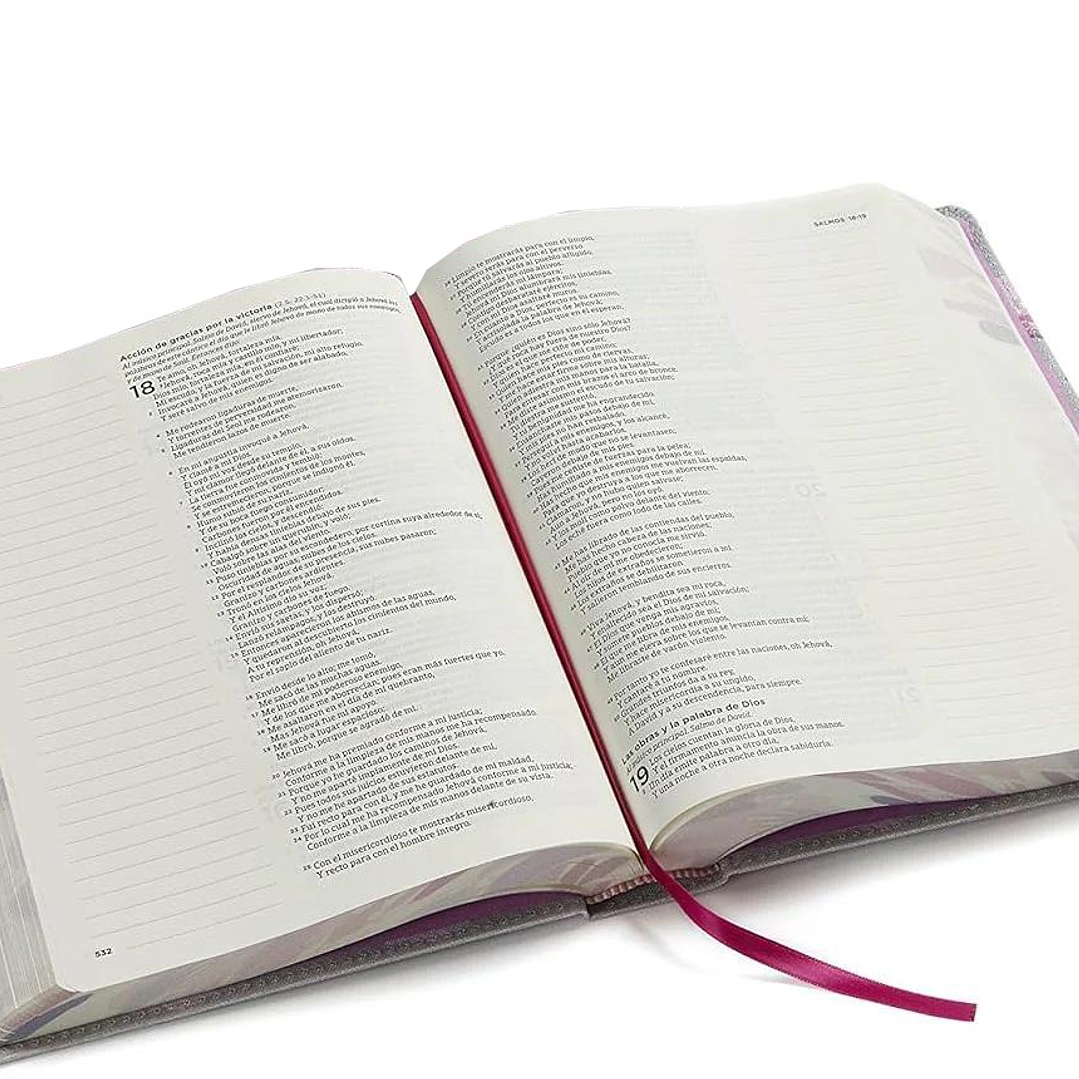 Acción de gracias por la victoria (2 S. 22.1-51)
Al músico principal. Salmo de David, siervo de Jehová, el cual dirigió a Jehová las
palabras de este cántico el día que le libró Jehová de mano de todos sus enemigos,
y de mano de Saúl. Entonces dijo:
18 Te amo, oh Jehová, fortaleza mía.
Jehová, roca mía y castillo mío, y mi libertador;
Dios mío, fortaleza mía, en él confiaré;
Mi escudo, y la fuerza de mi salvación, mi alto refugio.
Invocaré a Jehová, quien es digno de ser alabado,
Y seré salvo de mis enemigos.
4 Me rodearon ligaduras de muerte,
Y torrentes de perversidad me atemorizaron.
5 Ligaduras del Seol me rodearon,
Me tendieron lazos de muerte.
6 En mi angustia invoqué a Jehová,
Y clamé a mi Dios.
Él oyó mi voz desde su templo,
Y mi clamor llegó delante de él, a sus oídos.
7 La tierra fue conmovida y tembló;
Se conmovieron los cimientos de los montes,
Y se estremecieron, porque se indignó él.
8 Humo subió de su nariz,
Y de su boca fuego consumidor;
Carbones fueron por él encendidos.
9 Inclinó los cielos, y descendió;
Y había densas tinieblas debajo de sus pies.
10 Cabalgó sobre un querubín, y voló;
Voló sobre las alas del viento.
11 Puso tinieblas por su escondedero, por cortina suya alrededor de sí;
Oscuridad de aguas, nubes de los cielos.
12 Por el resplandor de su presencia, sus nubes pasaron;
Granizo y carbones ardientes.
13 Tronó en los cielos Jehová,
Y el Altísimo dio su voz;
Granizo y carbones de fuego.
14 Envió sus saetas, y los dispersó;
Lanzó relámpagos, y los destruyó.
15 Entonces aparecieron los abismos de las aguas,
Y quedaron al descubierto los cimientos del mundo,
A tu reprensión, oh Jehová,
Por el soplo del aliento de tu nariz.
16 Envió desde lo alto; me tomó,
Me sacó de las muchas aguas.
17 Me libró de mi poderoso enemigo,
Y de los que me aborrecían; pues eran más fuertes que yo.
18 Me asaltaron en el día de mi quebranto,
Mas Jehová fue mi apoyo.
19 Me sacó a lugar espacioso;
Me libró, porque se agradó de mí.
20 Jehová me ha premiado conforme a mi justicia;
Conforme a la limpieza de mis manos me ha recompensado.
21 Porque yo he guardado los caminos de Jehová,
Y no me aparté impíamente de mi Dios.
22 Pues todos sus juicios estuvieron delante de mí,
Y no me he apartado de sus estatutos.
23 Fui recto para con él, y me he guardado de mi maldad,
24 Por lo cual me ha recompensado Jehová conforme a mi justicia;
Conforme a la limpieza de mis manos delante de su vista.
25 Con el misericordioso te mostrarás misericordioso,
Y recto para con el hombre íntegro.
532
SALMOS 18-19
26 Limpio te mostrarás para con el limpio,
Y severo serás para con el perverso.
27 Porque tú salvarás al pueblo afligido,
Y humillarás los ojos altivos.
28 Tú encenderás mi lámpara;
Jehová mi Dios alumbrará mis tinieblas.
29 Contigo desbarataré ejércitos,
Y con mi Dios asaltaré muros.
30 En cuanto a Dios, perfecto es su camino,
Y acrisolada la palabra de Jehová;
Escudo es a todos los que en él esperan.
31 Porque ¿quién es Dios sino sólo Jehová?
¿Y qué roca hay fuera de nuestro Dios?
32 Dios es el que me ciñe de poder,
Y quien hace perfecto mi camino;
33 Quien hace mis pies como de ciervas,
Y me hace estar firme sobre mis alturas;
34 Quien adiestra mis manos para la batalla,
Para entesar con mis brazos el arco de bronce.
35 Me diste asimismo el escudo de tu salvación;
Tu diestra me sustentó,
Y tu benignidad me ha engrandecido.
36 Ensanchaste mis pasos debajo de mí,
Y mis pies no han resbalado.
37 Perseguí a mis enemigos, y los alcancé,
Y no volví hasta acabarlos.
38 Los herí de modo que no se levantasen;
Cayeron debajo de mis pies.
39 Pues me ceñiste de fuerzas para la pelea;
Has humillado a mis enemigos debajo de mí.
40 Has hecho que mis enemigos me vuelvan las espaldas,
Para que yo destruya a los que me aborrecen.
41 Clamaron, y no hubo quien salvase;
Aun a Jehová, pero no los oyó.
42 Y los molí como polvo delante del viento;
Los eché fuera como lodo de las calles.
43 Me has librado de las contiendas del pueblo;
Me has hecho cabeza de las naciones;
Pueblo que yo no conocía me sirvió.
44 Al oír de mí me obedecieron;
Los hijos de extraños se sometieron a mí.
45 Los extraños se debilitaron
Y salieron temblando de sus encierros.
46 Viva Jehová, y bendita sea mi roca,
Y enaltecido sea el Dios de mi salvación;
47 El Dios que venga mis agravios,
Y somete pueblos debajo de mí;
48 El que me libra de mis enemigos,
Y aun me eleva sobre los que se levantan contra mí;
Me libraste de varón violento.
49 Por tanto yo te confesaré entre las naciones, oh Jehová,
Y cantaré a tu nombre.
50 Grandes triunfos da a su rey,
Y hace misericordia a su ungido,
A David y a su descendencia, para siempre.
Las obras y la palabra de Dios
Al músico principal. Salmo de David.
19 Los cielos cuentan la gloria de Dios,
Y el firmamento anuncia la obra de sus manos.
2 Un día emite palabra a otro día,
Y una noche a otra noche declara sabiduría.